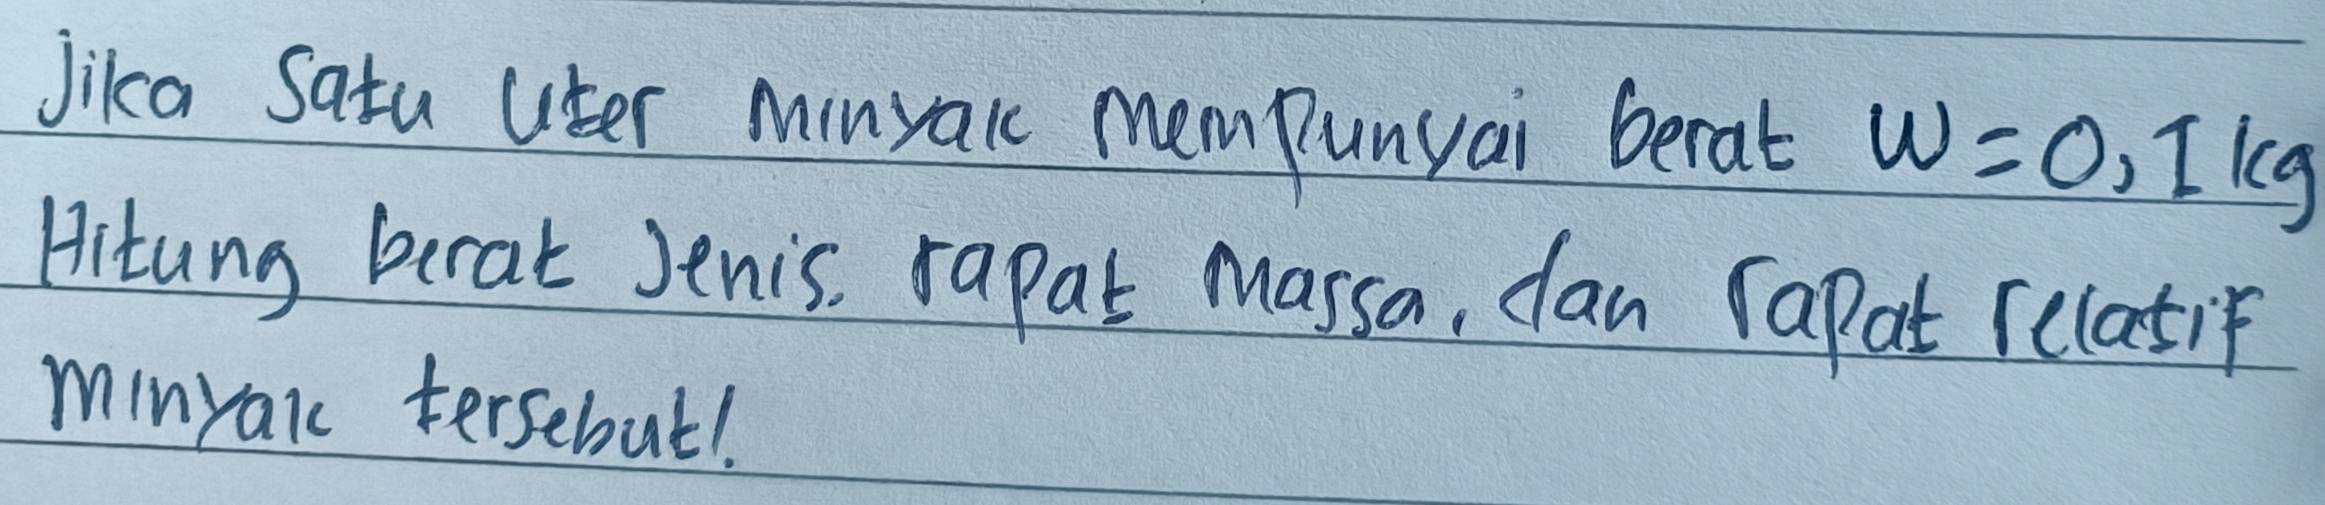 Jika Satu Liter Minyak Mempunyai berat W = 0,1 kg
Hitung berat Jenis. rapat Massa, dan rapat relatif
Minyak tersebut!